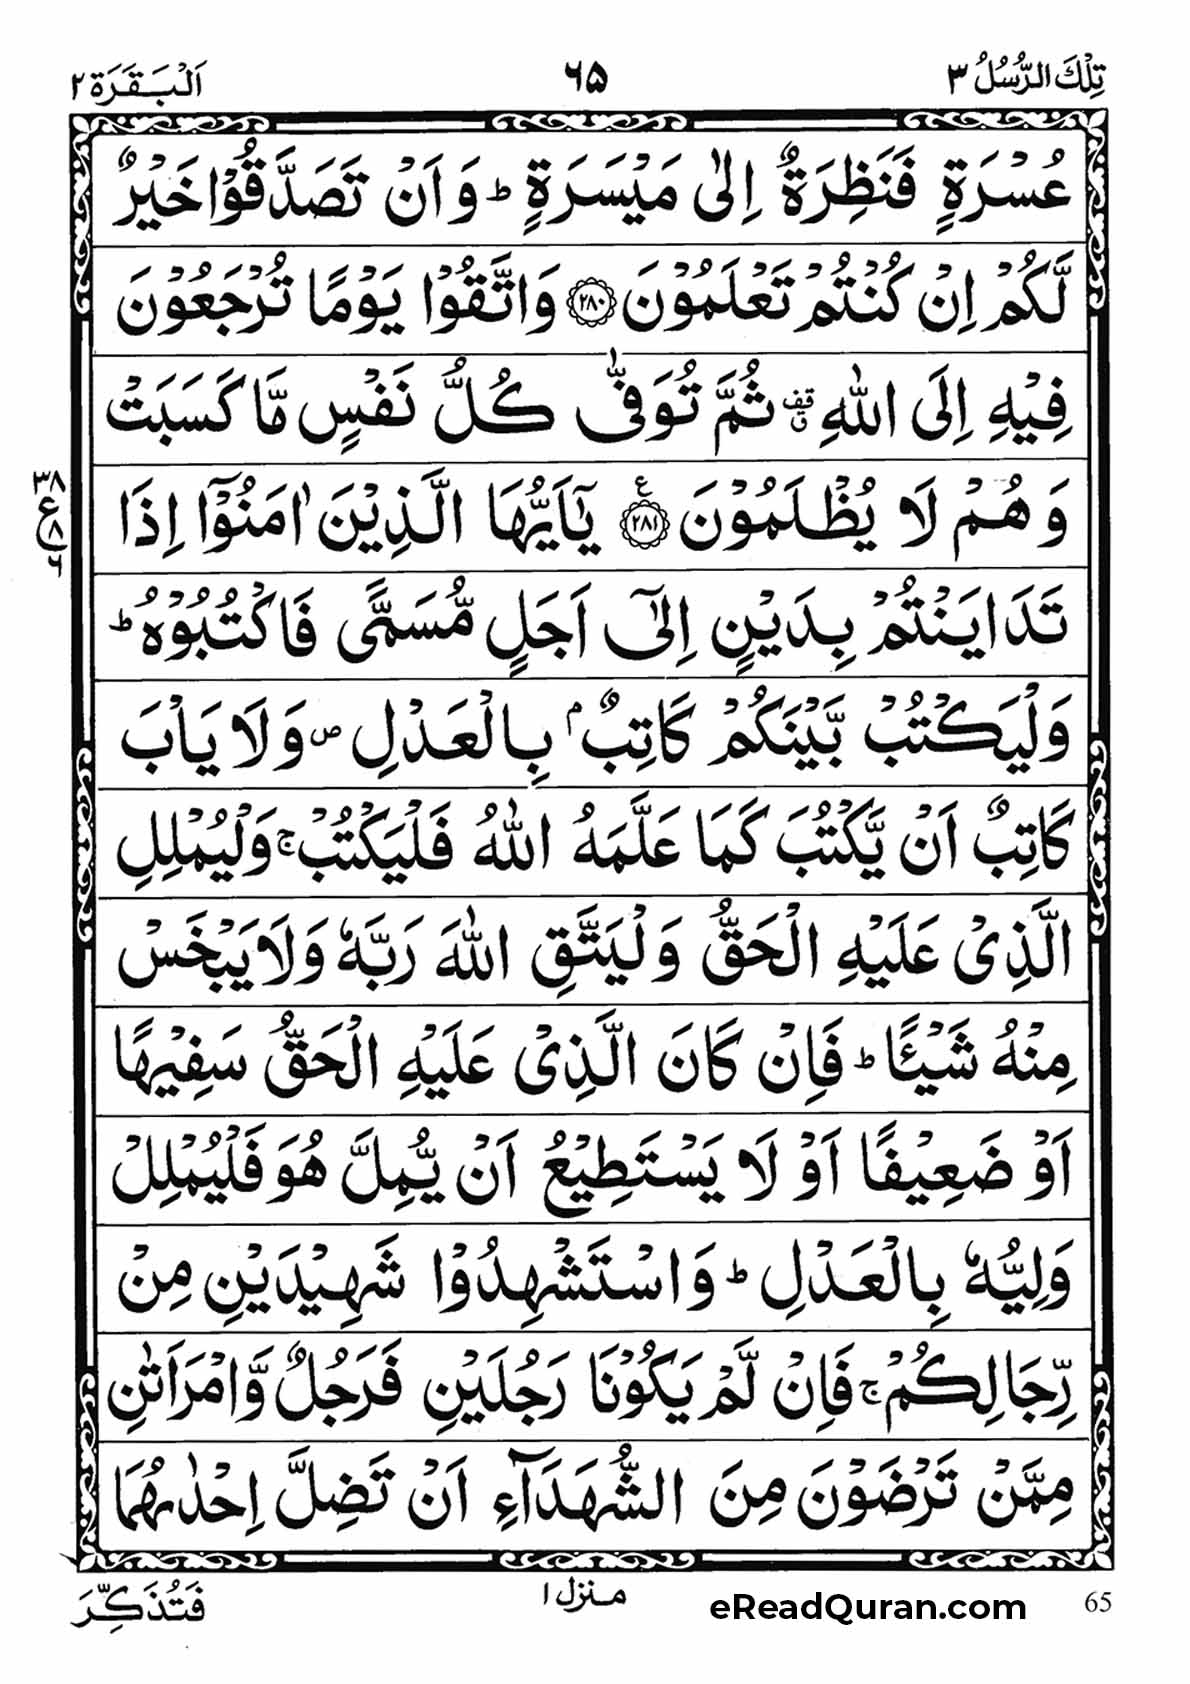 تِلْكَ الرُّسُلُ ٣
٦٥
اَلْبَقَرَة ٢
عُسْرَةٍ فَنَظِرَةٌ اِلٰى مَيْسَرَةٍ ؕ وَ اَنْ تَصَدَّقُوْا خَيْرٌ
لَّكُمْ اِنْ كُنْتُمْ تَعْلَمُوْنَ ﴿٢٨٠﴾ وَاتَّقُوْا يَوْمًا تُرْجَعُوْنَ
فِيْهِ اِلَى اللّٰهِ ۟قف ثُمَّ تُوَفّٰى كُلُّ نَفْسٍ مَّا كَسَبَتْ
وَ هُمْ لَا يُظْلَمُوْنَ ﴿٢٨١﴾ ع يٰۤاَيُّهَا الَّذِيْنَ اٰمَنُوْۤا اِذَا
٣٨
ع
٨
٦
تَدَايَنْتُمْ بِدَيْنٍ اِلٰۤى اَجَلٍ مُّسَمًّى فَاكْتُبُوْهُ ؕ
وَلْيَكْتُبْ بَّيْنَكُمْ كَاتِبٌۢ بِالْعَدْلِ ۪ وَلَا يَاْبَ
كَاتِبٌ اَنْ يَّكْتُبَ كَمَا عَلَّمَهُ اللّٰهُ فَلْيَكْتُبْ ۚ وَلْيُمْلِلِ
الَّذِيْ عَلَيْهِ الْحَقُّ وَلْيَتَّقِ اللّٰهَ رَبَّهٗ وَلَا يَبْخَسْ
مِنْهُ شَيْـًٔا ؕ فَاِنْ كَانَ الَّذِيْ عَلَيْهِ الْحَقُّ سَفِيْهًا
اَوْ ضَعِيْفًا اَوْ لَا يَسْتَطِيْعُ اَنْ يُّمِلَّ هُوَ فَلْيُمْلِلْ
وَلِيُّهٗ بِالْعَدْلِ ؕ وَاسْتَشْهِدُوْا شَهِيْدَيْنِ مِنْ
رِّجَالِكُمْ ۚ فَاِنْ لَّمْ يَكُوْنَا رَجُلَيْنِ فَرَجُلٌ وَّامْرَاَتٰنِ
مِمَّنْ تَرْضَوْنَ مِنَ الشُّهَدَآءِ اَنْ تَضِلَّ اِحْدٰىهُمَا
فَتُذَكِّرَ
منزل ١
eReadQuran.com
65